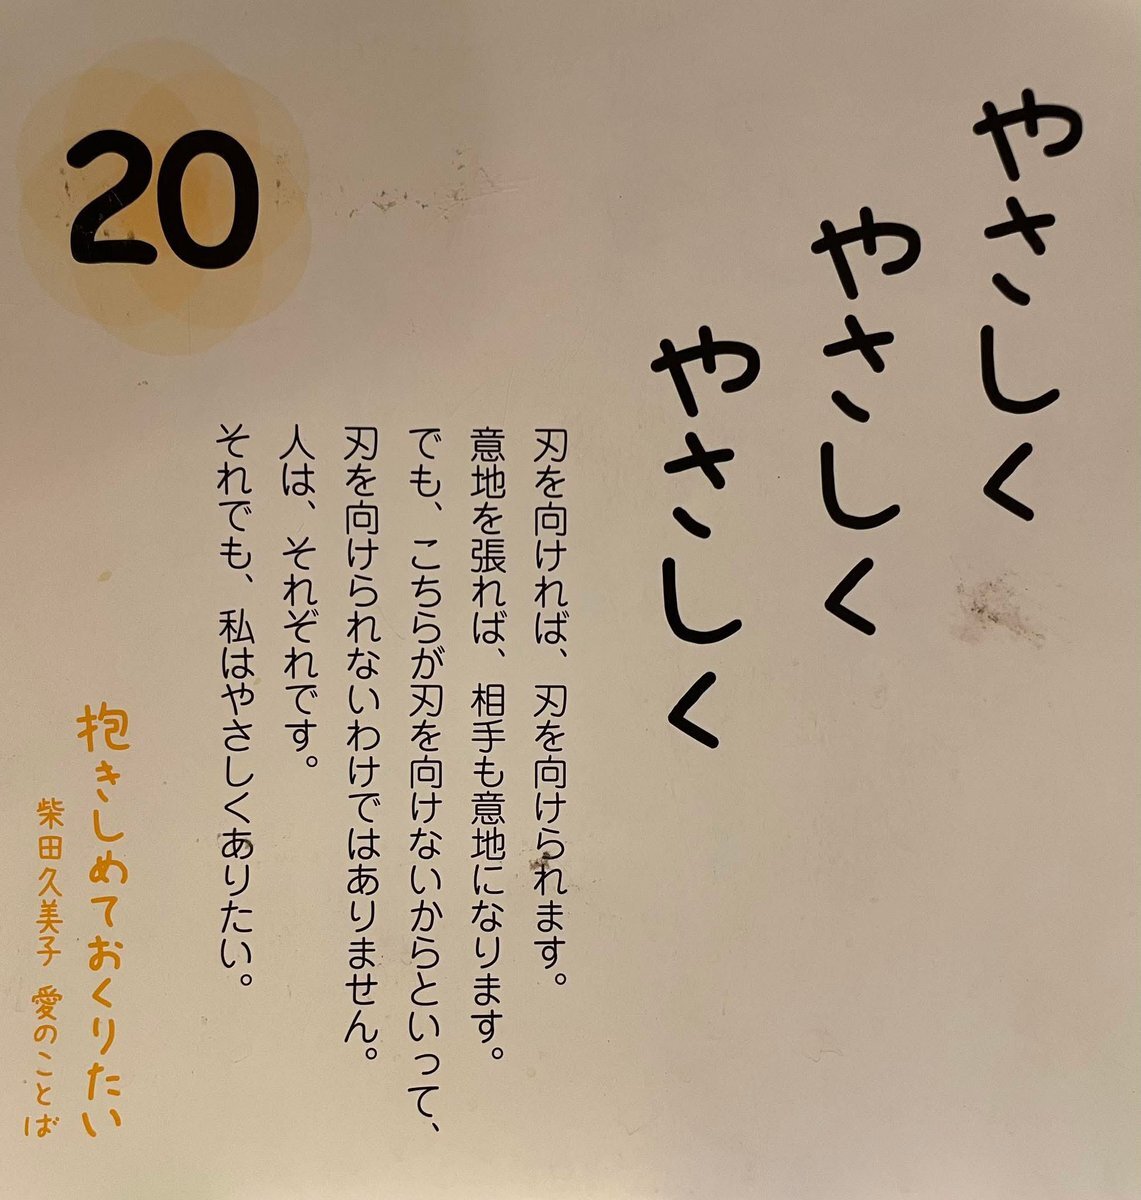 やさしく
やさしく
やさしく
刃を向ければ、刃を向けられます。
意地を張れば、相手も意地になります。
でも、こちらが刃を向けないからといって、
刃を向けられないわけではありません。
人は、それぞれです。
それでも、私はやさしくありたい。
20
抱きしめておくりたい
柴田久美子 愛のことば